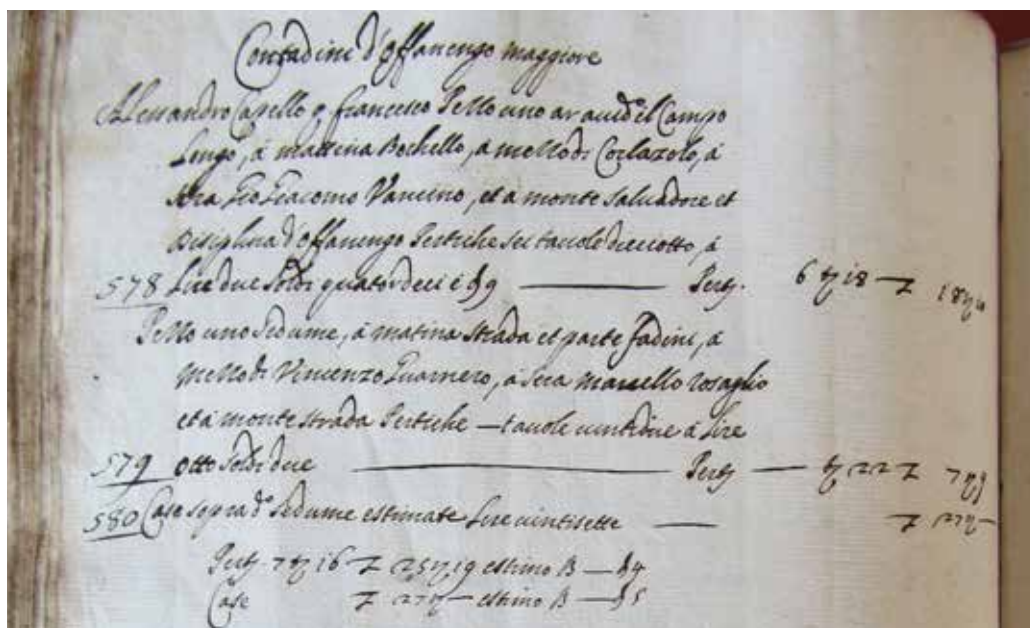 Contadini d'Offanengo maggiore
Alessandro Capello q. francesco Pezzo uno ar. auid. il Campo
Longo, á mattina Bochello, a mezzo dì Corlazolo, á
sera Gio Giacomo Vancino, et a monte Saluadore et
Disciplina d'Offanengo Pertiche sei tauole dieciotto, á
578 Lire due soldi quatordeci é 9 — Pert. 6 t 18 — 18
Pezzo uno sedume, á matina strada et parte fadini, á
mezzo dì Vincenzo Guarnero, á sera Marcello rosaglio
et á monte strada Pertiche — tauole uintidue á Lire
579 otto soldi due — Pert — t 22 7 9
580 Case sopra d.º sedume estimate Lire uintisette — 27 —
Pert. 7 t 16 25 19 estimo — 4
Case 27 — estimo — 5